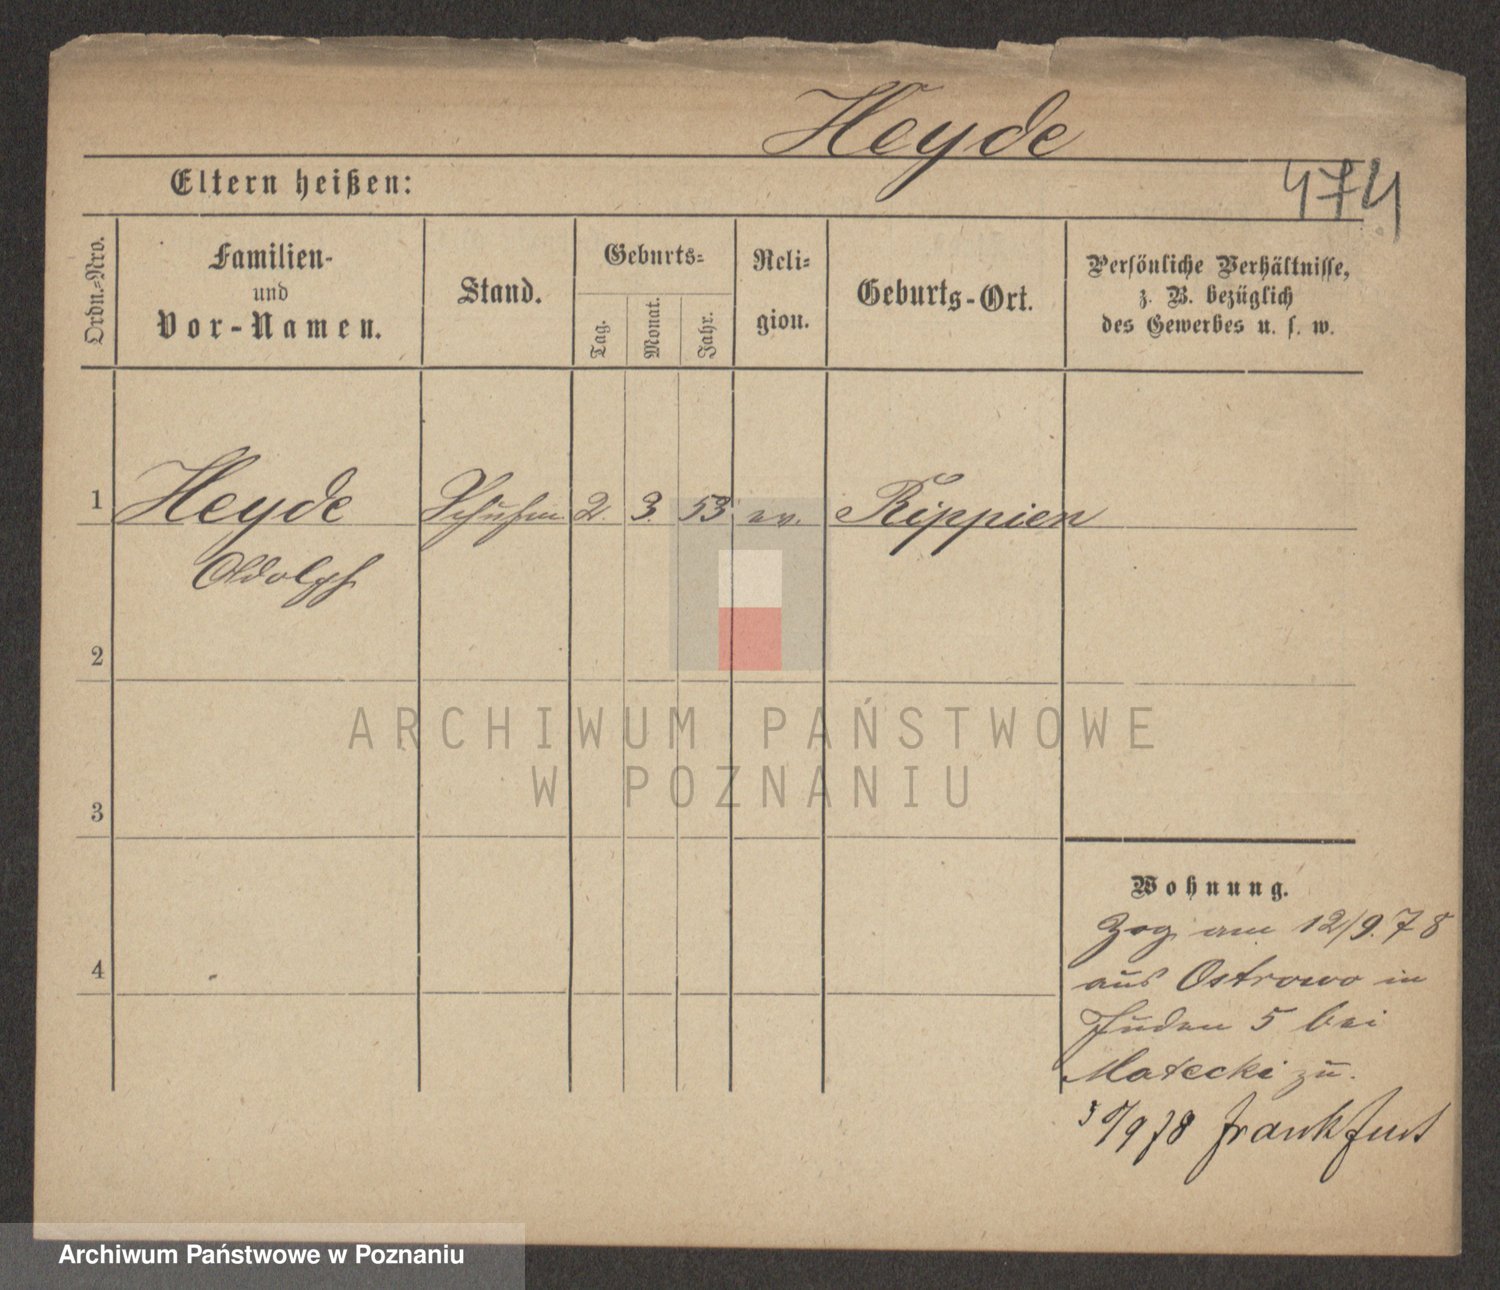 Heyde
Eltern heißen:
474
Ordn.-Nro.
Familien-
und
Vor-Namen.
Stand.
Geburts-
Tag.
Monat.
Jahr.
Reli-
gion.
Geburts-Ort.
Persönliche Verhältnisse,
z. B. bezüglich
des Gewerbes u. s. w.
1 Heyde Schuhm 2. 3. 53 ev. Rippien
Adolph
2
3
4
Wohnung.
Zog am 12/9.78
aus Ostrowo in
Juden 5 bei
Matecki zu.
30/9 78 Frankfurt
ARCHIWUM PAŃSTWOWE
W POZNANIU
Archiwum Państwowe w Poznaniu